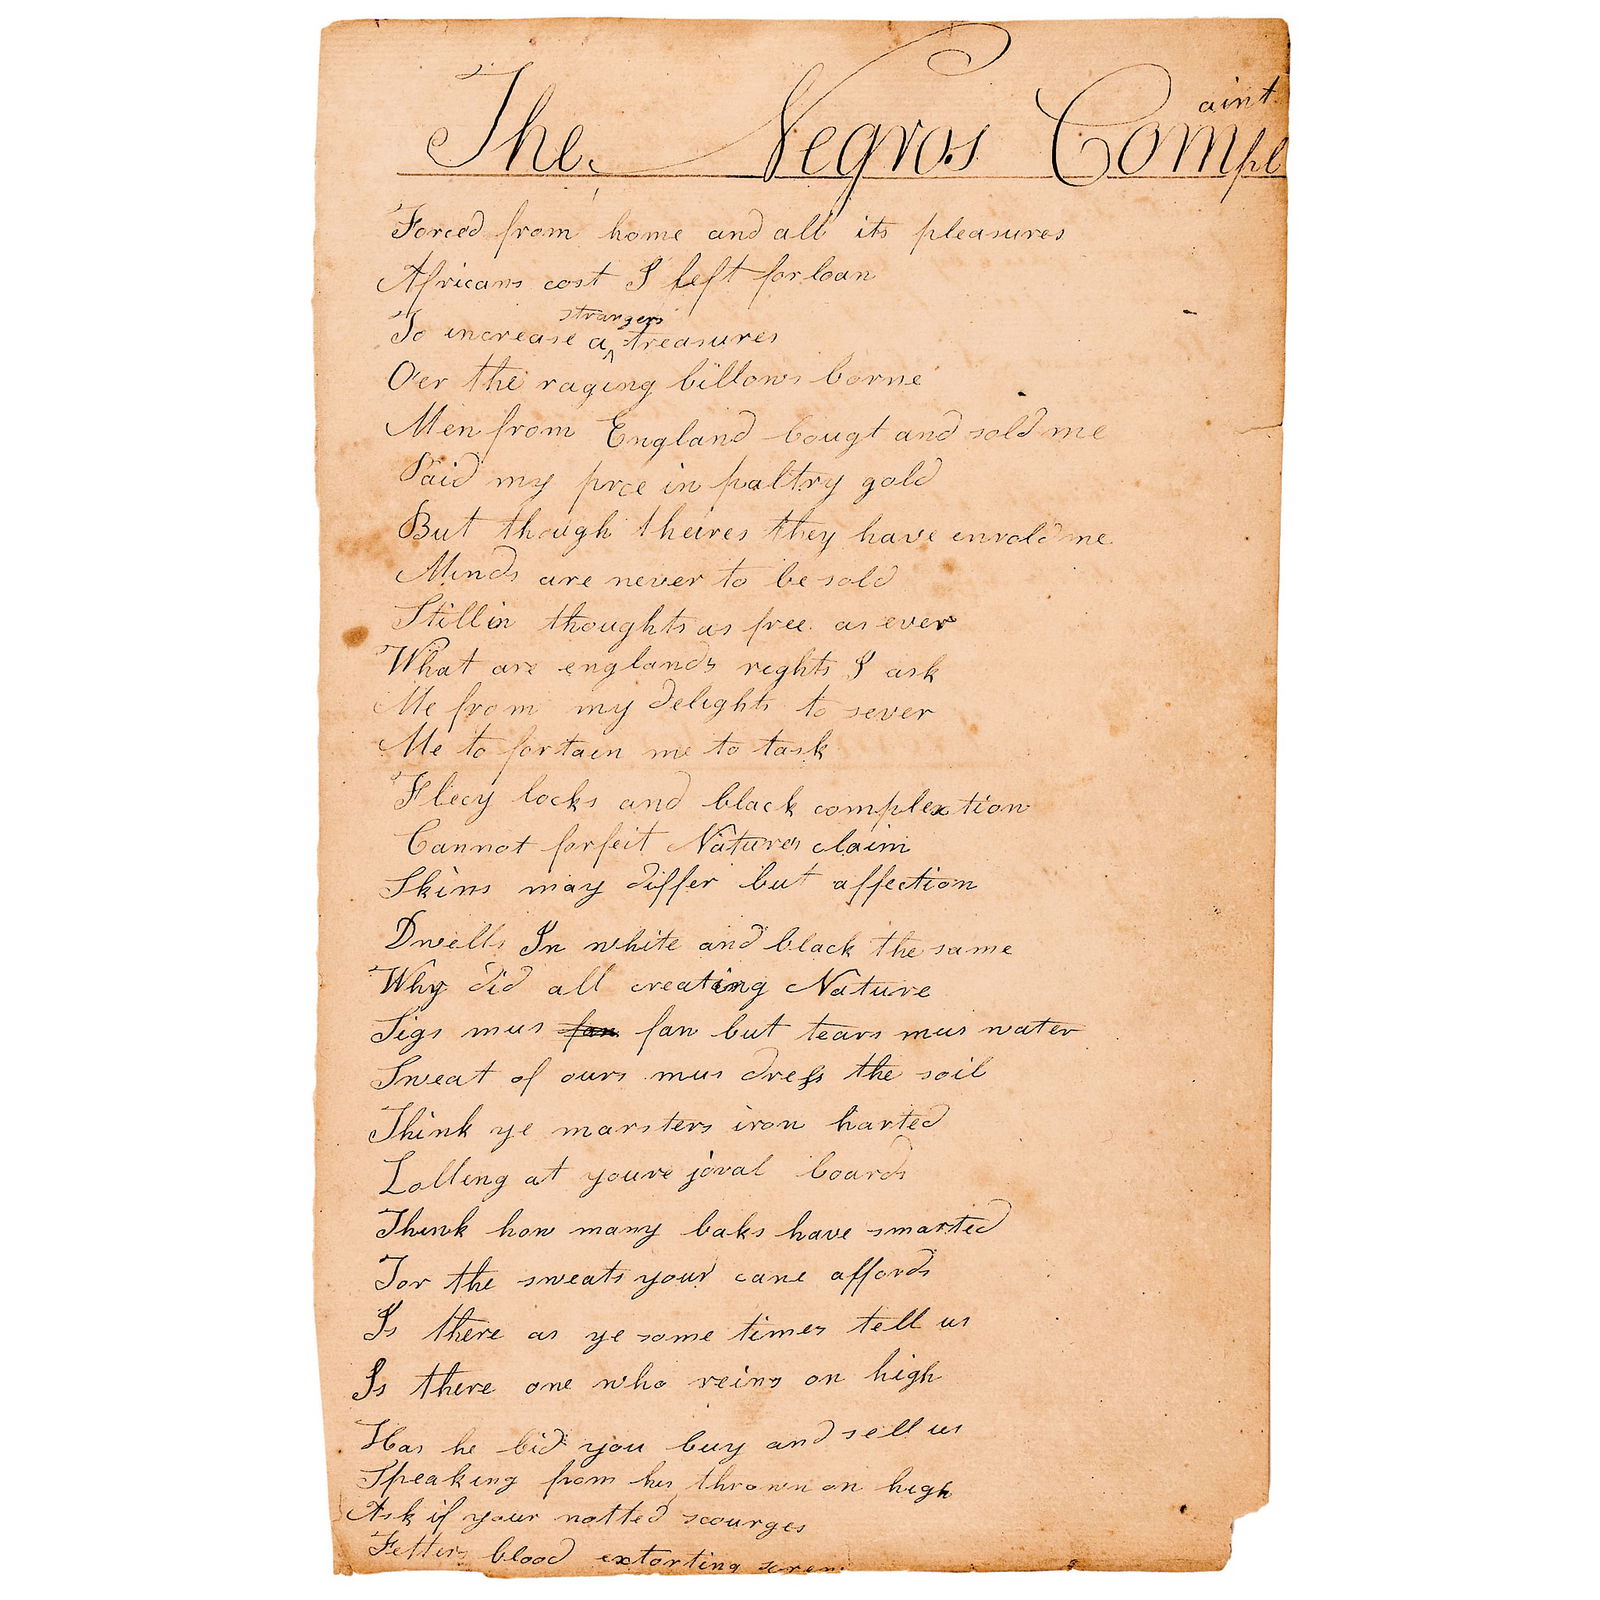 The Negros Complaint
Forced from home and all its pleasures
Africans cost I left forloan
To increase a strangers treasures
O'er the raging billows borne
Men from England bougt and sold me
Paid my prce in paltry gold
But though theires they have enrold me
Minds are never to be sold
Still in thoughts as free as ever
What are englands rights I ask
Me from my delights to sever
Me to fortain me to task
Flecy locks and black complextion
Cannot forfeit Natures claim
Skins may differ but affection
Dwells In white and black the same
Why did all creating Nature
Sigs mus fan fan but tears mus water
Sweat of ours mus dress the soil
Think ye marsters iron harted
Lolleng at youre joval boards
Think how many baks have smarted
For the sweats your cane affords
Is there as ye some times tell us
Is there one who reins on high
Has he bid you buy and sell us
Speaking from his thrown on high
Ask if your notted scourges
Fetters blood extorting